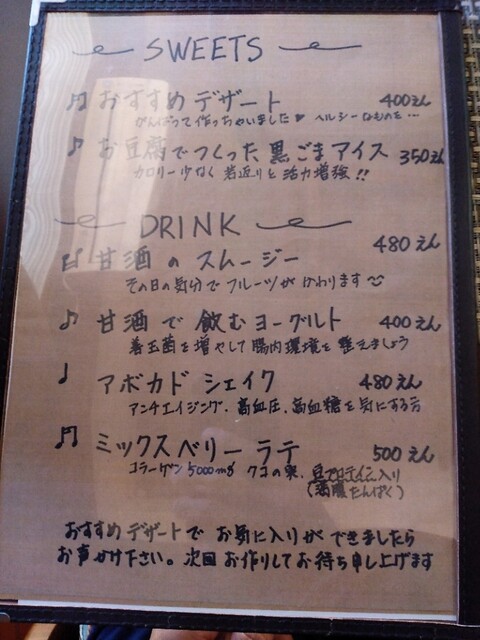 SWEETS
おすすめデザート 400えん
がんばって作っちゃいました ヘルシーなものを…
お豆腐でつくった黒ごまアイス 350えん
カロリー少なく 若返りと活力増強!!
DRINK
甘酒のスムージー 480えん
その日の気分でフルーツがかわります
甘酒で飲むヨーグルト 400えん
善玉菌を増やして腸内環境を整えましょう
アボカドシェイク 480えん
アンチエイジング、高血圧、高血糖を気にする方
ミックスベリーラテ 500えん
コラーゲン5000mg クコの実、豆プロテイン入り
たんぱく)
おすすめデザートで お気に入りができましたら
お声かけ下さい。次回お作りしてお待ち申し上げます